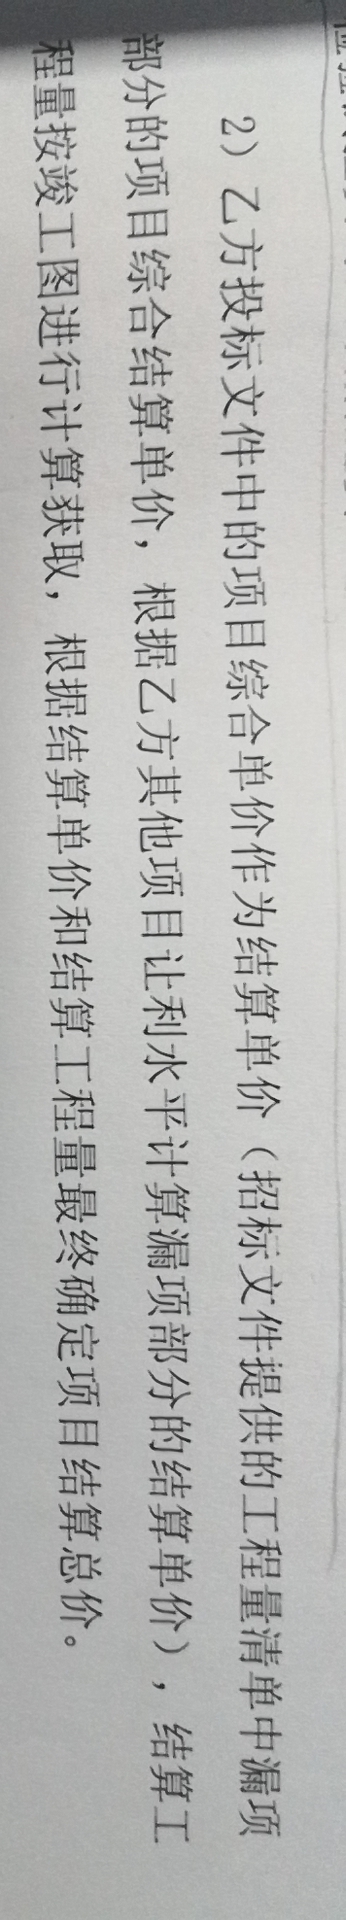 2）乙方投标文件中的项目综合单价作为结算单价（招标文件提供的工程量清单中漏项
部分的项目综合结算单价，根据乙方其他项目让利水平计算漏项部分的结算单价），结算工
程量按竣工图进行计算获取，根据结算单价和结算工程量最终确定项目结算总价。